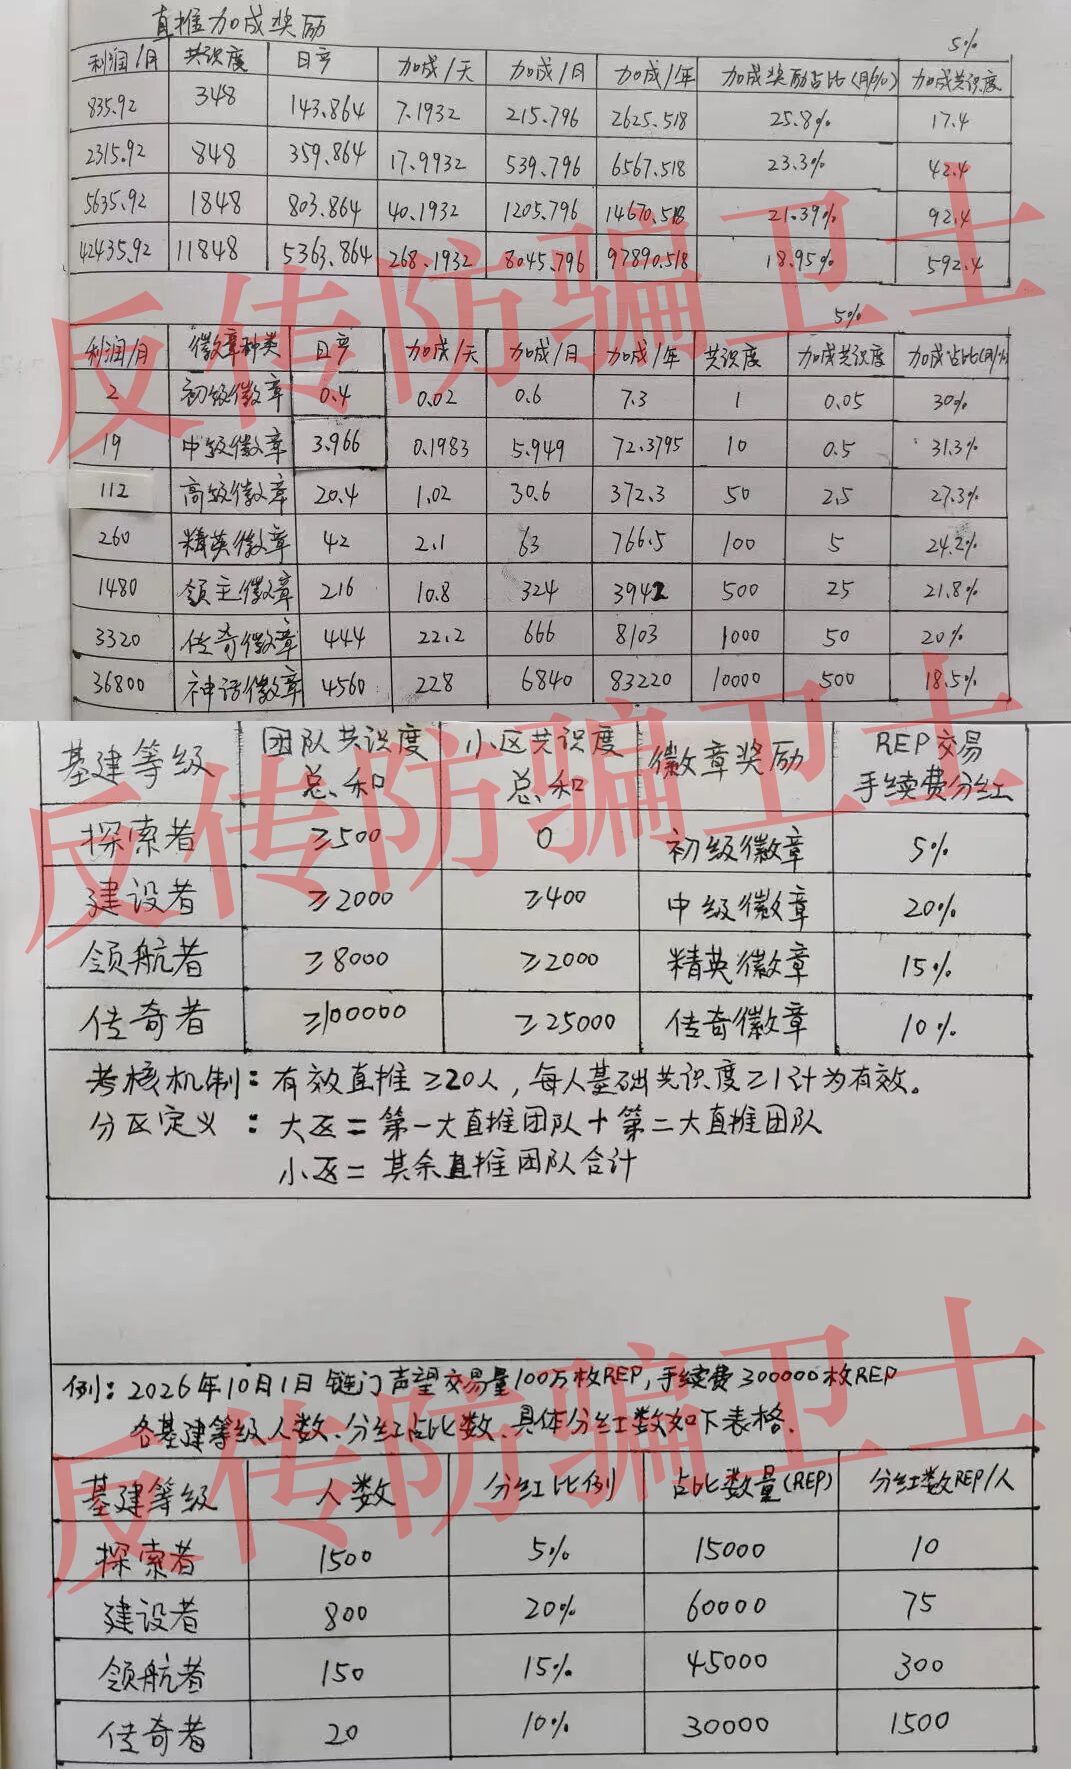 直推加成奖励
5%
利润/月 共识度 日产 加成/天 加成/月 加成/年 加成奖励占比(月/%) 加成共识度
835.92 348 143.864 7.1932 215.796 2625.518 25.8% 17.4
2315.92 848 359.864 17.9932 539.796 6567.518 23.3% 42.4
5635.92 1848 803.864 40.1932 1205.796 14670.518 21.39% 92.4
42435.92 11848 5363.864 268.1932 8045.796 97890.518 18.95% 592.4
5%
利润/月 徽章种类 日产 加成/天 加成/月 加成/年 共识度 加成共识度 加成占比(月/%)
2 初级徽章 0.4 0.02 0.6 7.3 1 0.05 30%
19 中级徽章 3.966 0.1983 5.949 72.3795 10 0.5 31.3%
112 高级徽章 20.4 1.02 30.6 372.3 50 2.5 27.3%
260 精英徽章 42 2.1 63 766.5 100 5 24.2%
1480 领主徽章 216 10.8 324 3942 500 25 21.8%
3320 传奇徽章 444 22.2 666 8103 1000 50 20%
36800 神话徽章 4560 228 6840 83220 10000 500 18.5%
反传防骗卫士
基建等级 团队共识度总和 小区共识度总和 徽章奖励 REP交易手续费分红
探索者 ≥500 0 初级徽章 5%
建设者 ≥2000 ≥400 中级徽章 20%
领航者 ≥8000 ≥2000 精英徽章 15%
传奇者 ≥100000 ≥25000 传奇徽章 10%
反传防骗卫士
考核机制：有效直推≥20人，每人基础共识度≥1计为有效。
分区定义：大区=第一大直推团队+第二大直推团队
小区=其余直推团队合计
例：2026年10月1日链门声望交易量100万枚REP，手续费300000枚REP
各基建等级人数、分红占比数、具体分红数如下表格.
基建等级 人数 分红比例 占比数量(REP) 分红数REP/人
探索者 1500 5% 15000 10
建设者 800 20% 60000 75
领航者 150 15% 45000 300
传奇者 20 10% 30000 1500
反传防骗卫士